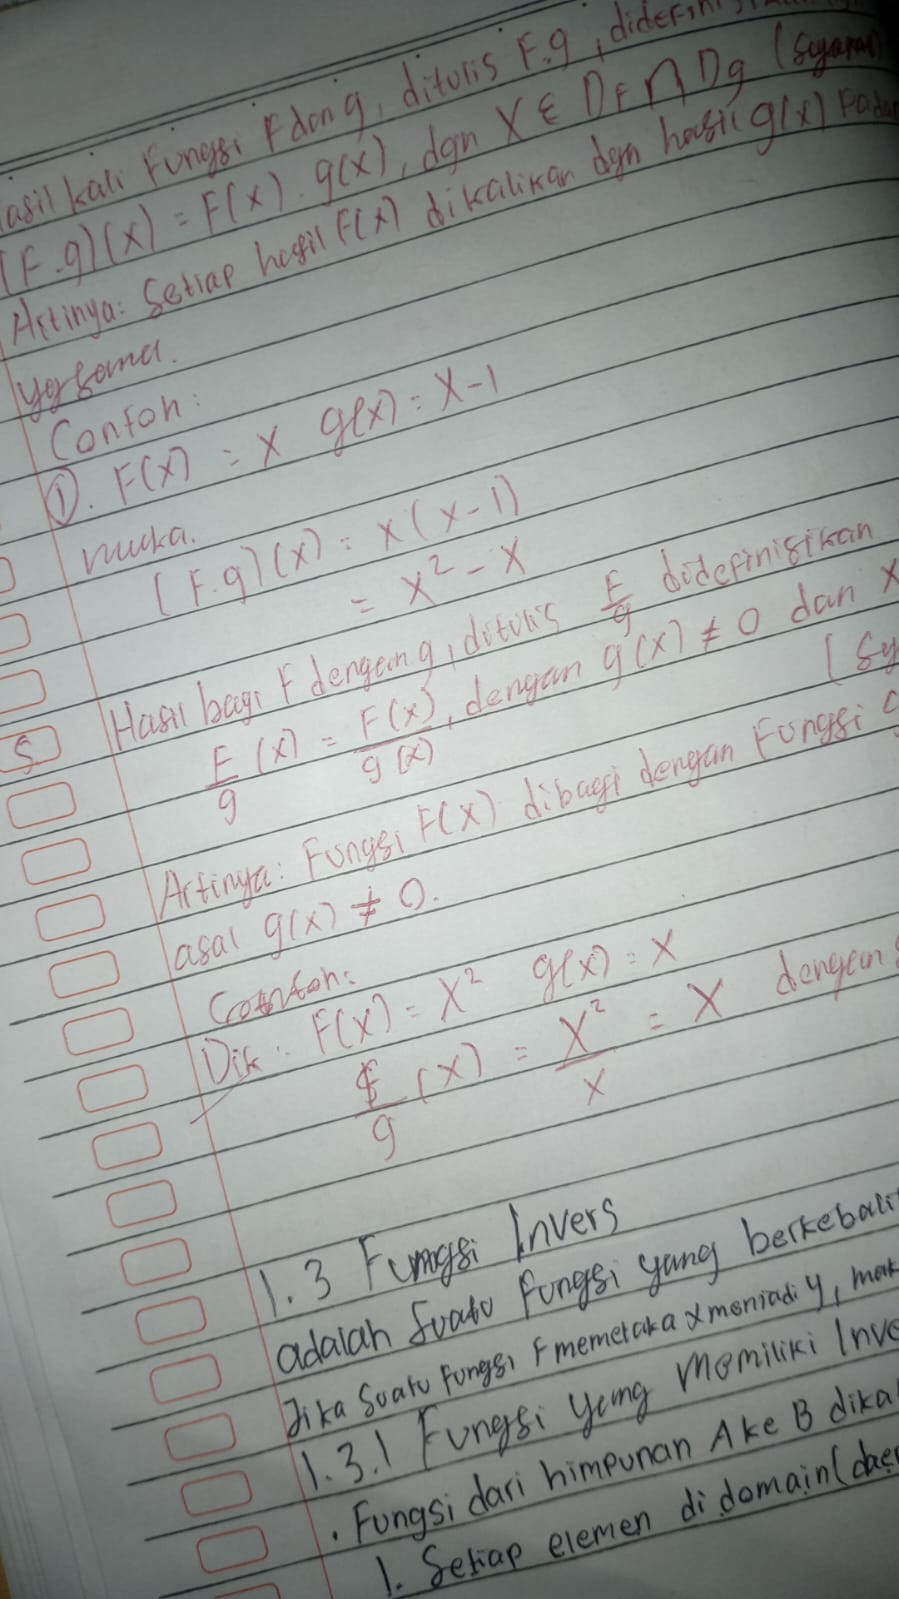 asil kali Fungsi F dan g, ditulis F.g, didefini
(F.g)(x) = F(x) . g(x), dgn X ∈ DF ∩ Dg (Syarat
Artinya: Setiap hasil F(x) dikalikan dgn hasil g(x) Pada
yg sama.
Contoh:
①. F(x) = X g(x) = X-1
maka.
(F.g)(x) = x(x-1)
= x² - x
Hasil bagi F dengan g, ditulis F/g didefinisikan
F/g (x) = F(x)/g(x), dengan g(x) ≠ 0 dan X
(Sy
S
Artinya: Fungsi F(x) dibagi dengan Fungsi g
asal g(x) ≠ 0.
Contoh:
Dik: F(x) = X² g(x) = X
F/g (x) = X²/X = X dengan
1.3 Fungsi Invers
adalah Suatu fungsi yang berkebali
Jika Suatu Fungsi F memetaka x menjadi y, mak
1.3.1 Fungsi yang Memiliki Inve
. Fungsi dari himpunan A ke B dika
1. Setiap elemen di domain (dae